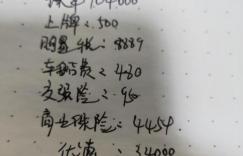 104000
上牌: 500
购置税: 8889
车船费: 420
交强险: 950
商业保险: 4454
优惠: 34000